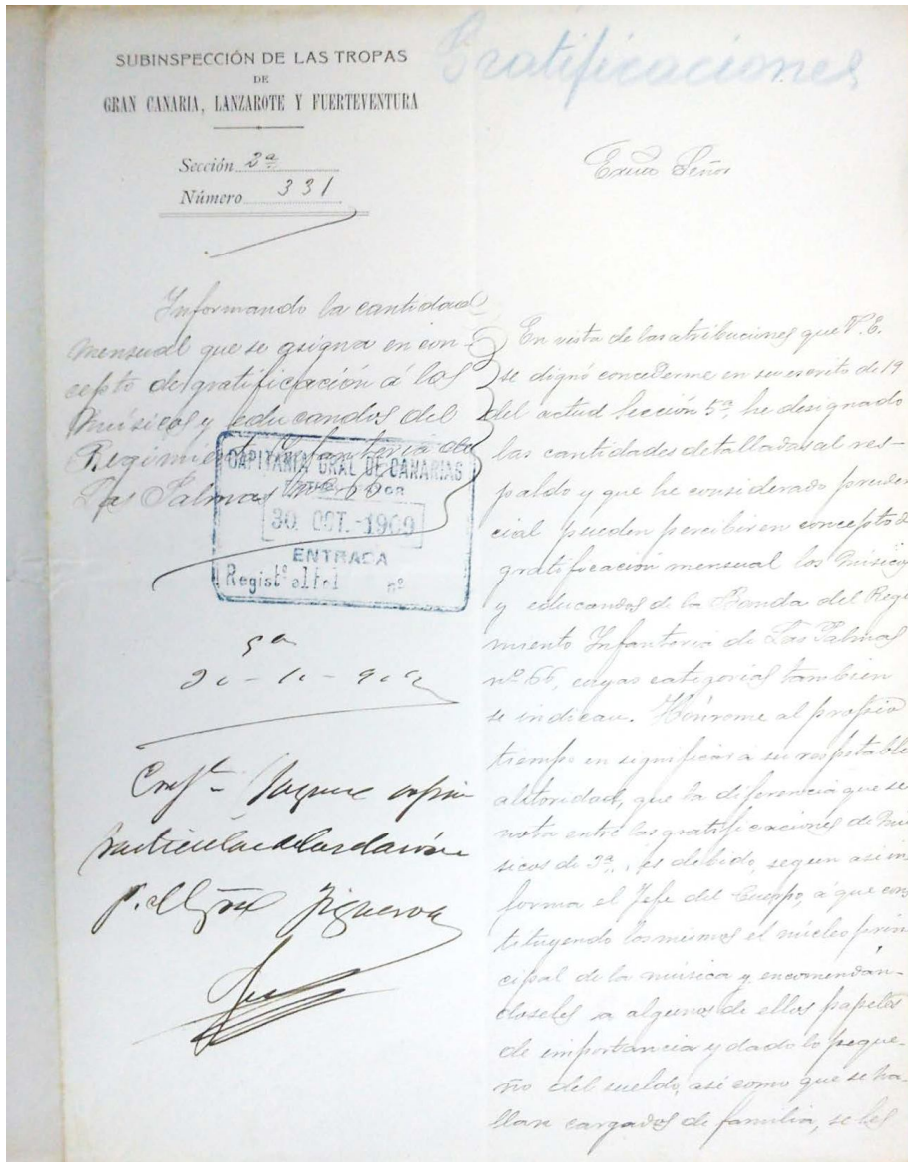 SUBINSPECCIÓN DE LAS TROPAS
DE
GRAN CANARIA, LANZAROTE Y FUERTEVENTURA
Sección 2ª
Número 331
Gratificaciones
Informando la cantidad
mensual que se asigna en con-
cepto de gratificación á los
músicos y educandos del
Regimiento Infantería de
Las Palmas nº 66
CAPITANIA GRAL DE CANARIAS
30 OCT.-1909
ENTRADA
Regist nº
5ª
Figueroa
Excmo Señor
En vista de las atribuciones que V.E.
se dignó concederme en su escrito de 19
del actual Sección 5ª, he designado
las cantidades detalladas al res-
paldo y que he considerado pruden
cial pueden percibir en concepto de
gratificación mensual los músicos
y educandos de la Banda del Regi
miento Infantería de Las Palmas
nº 66, cuyas categorías tambien
se indican. Hónrome al propio
tiempo en significar a su respetable
autoridad, que la diferencia que se
nota entre las gratificaciones de mú
sicos de 3ª, es debido, segun asi in
forma el Jefe del Cuerpo, á que cons
tituyendo los mismos el núcleo prin
cipal de la música y encomendán-
doseles a algunos de ellos papeles
de importancia y dado lo peque-
ño del sueldo, asi como que se ha-
llan cargados de familia, se les